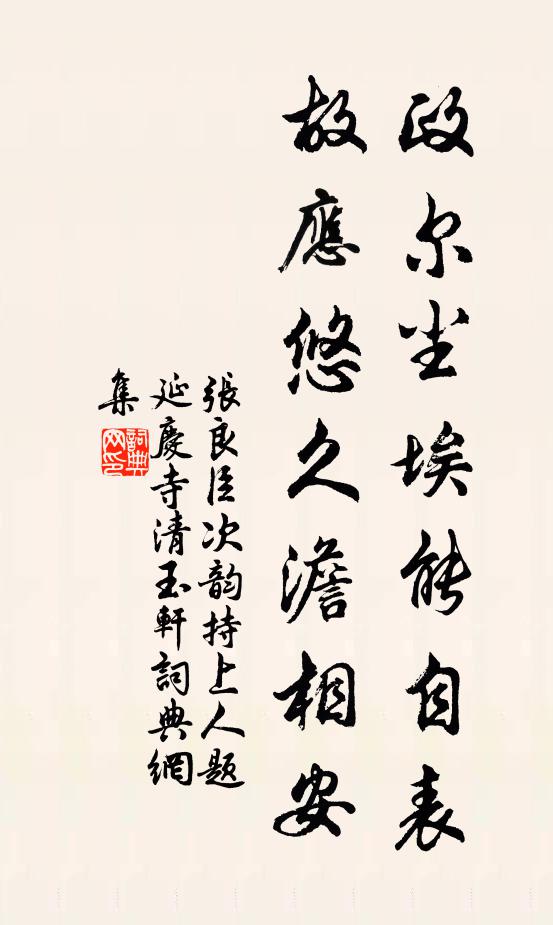 政尔尘埃能自表
故應悠久澹相安
張良臣次韵持上人題
延慶寺清玉軒詞典網
集
詞典网印